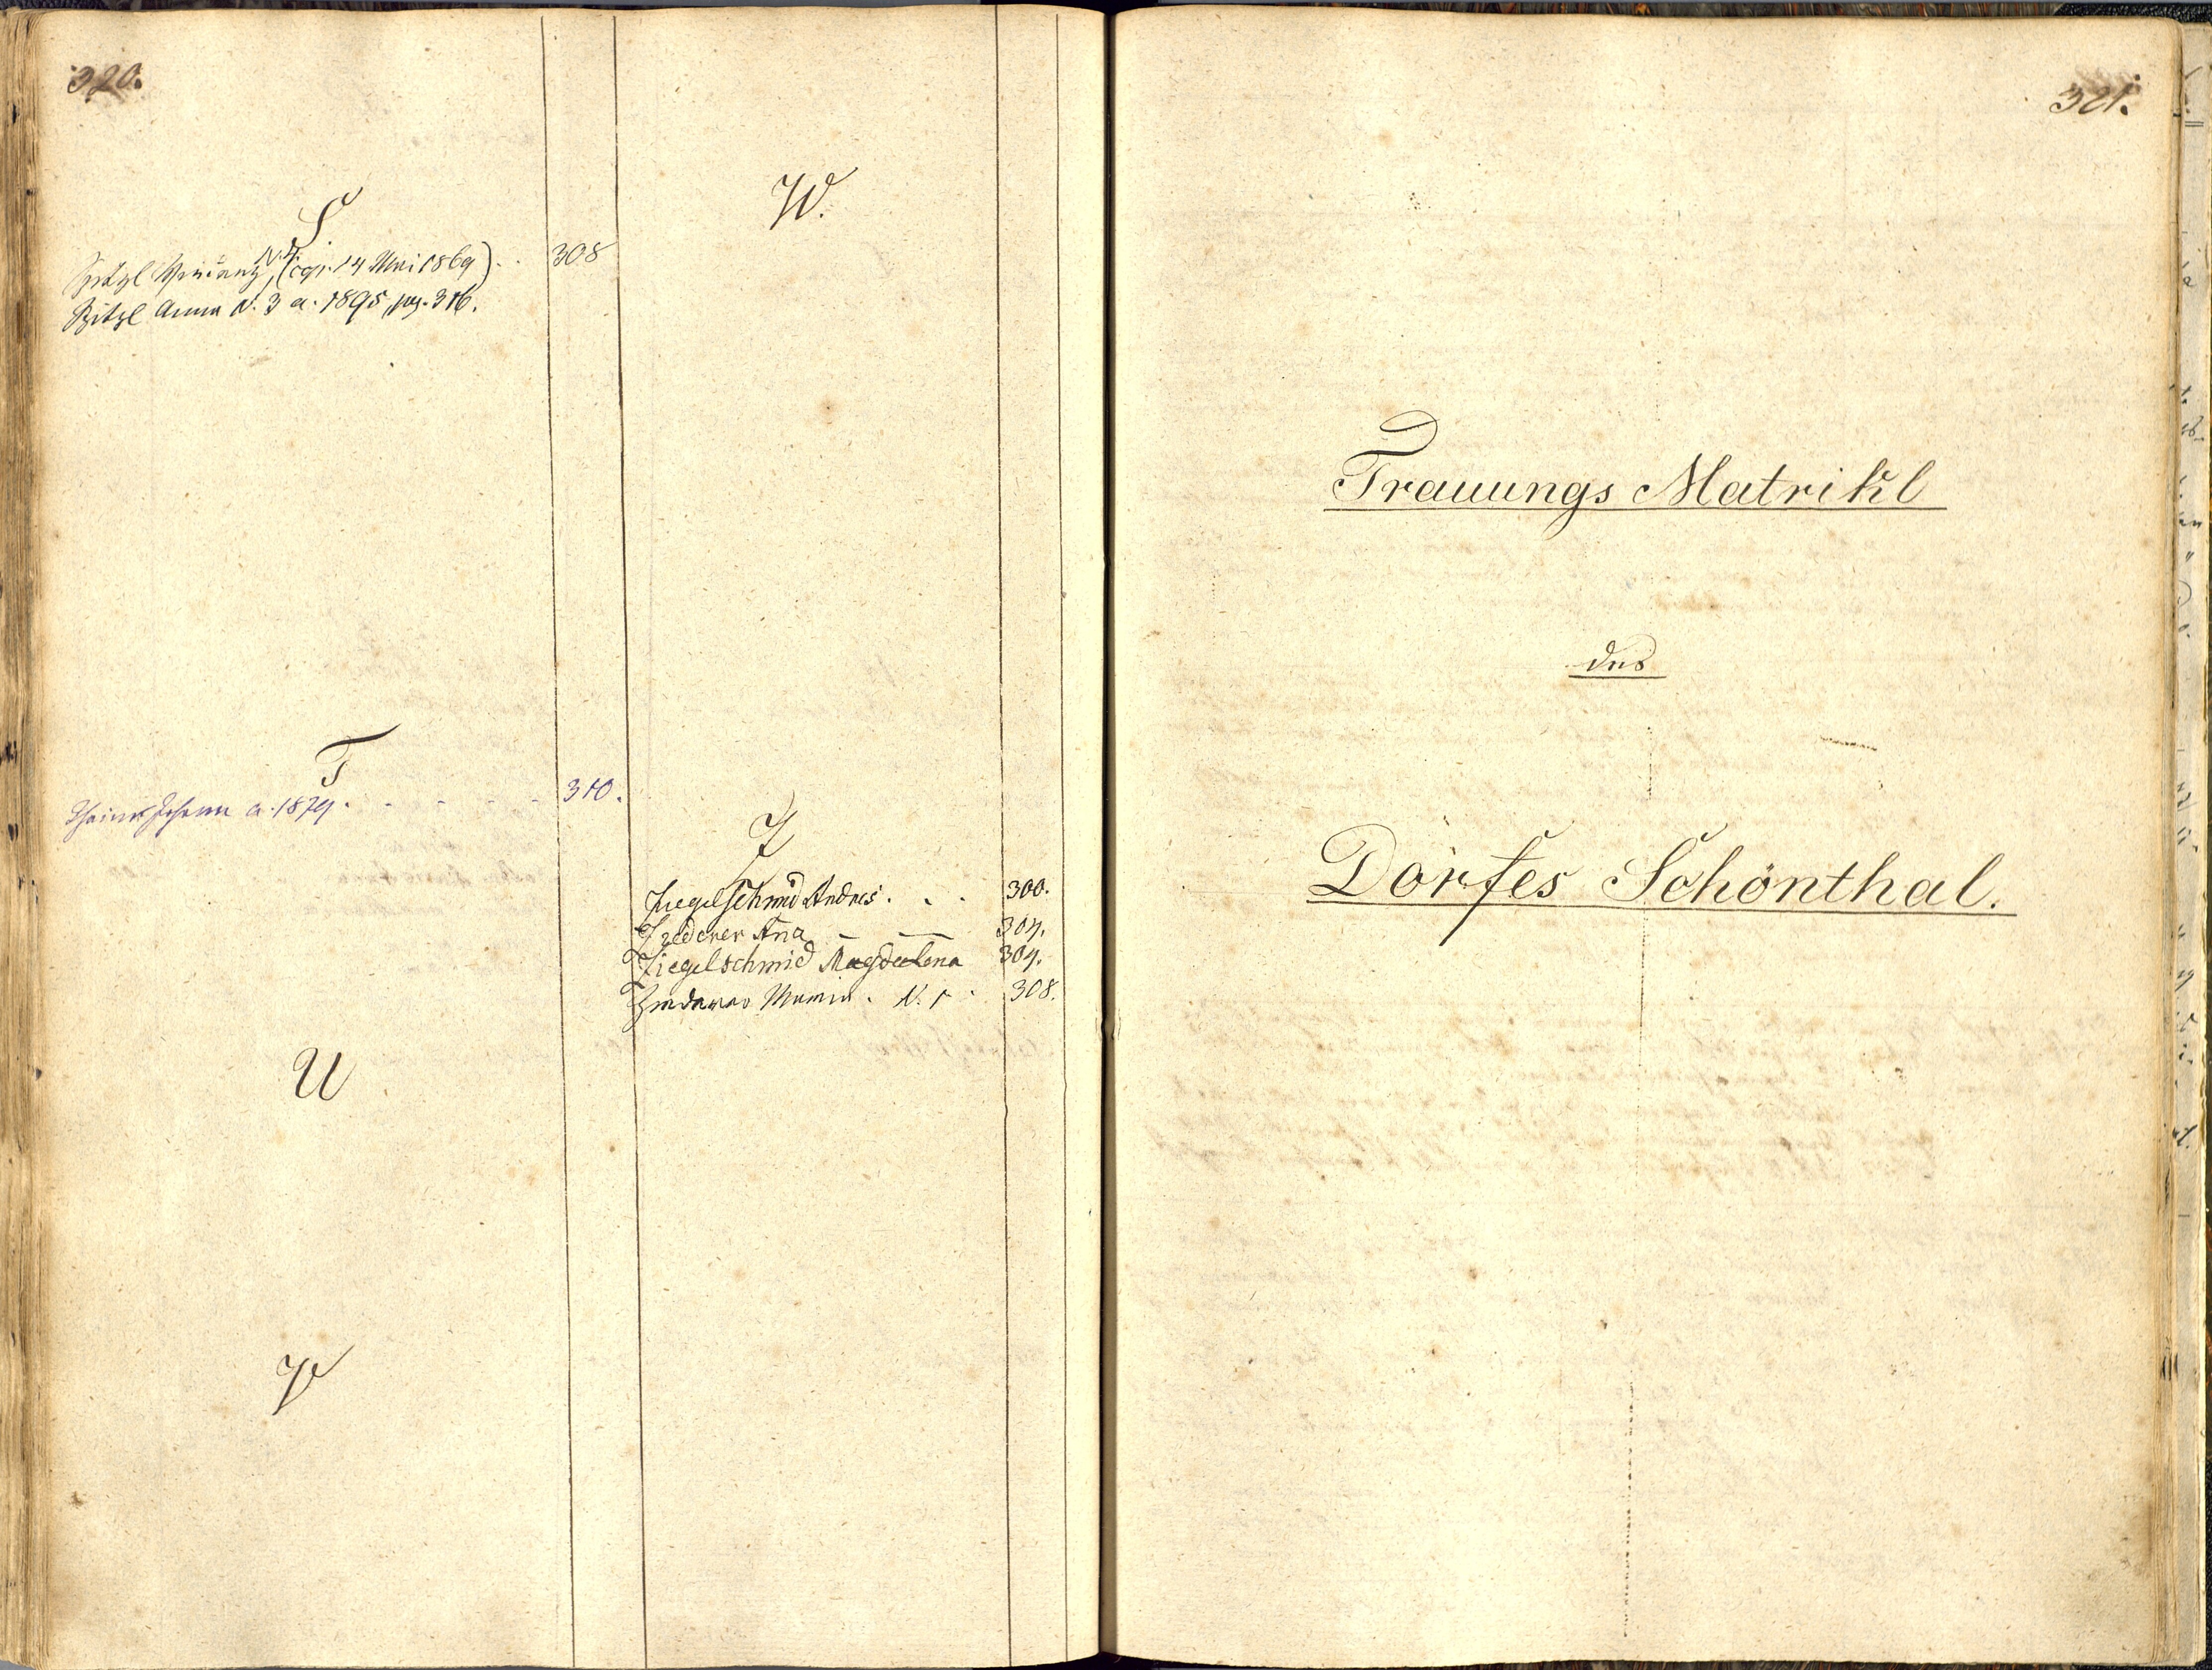 320.
S
N. 4.
Spitzl Vincenz, (cop. 14 Mai 1869) . . 308
Spitzl Anna N. 3 a. 1895, pag. 316.
T
Johann a. 1879. - - - - 310.
U
V
W.
Z
Ziegelschmid Andres . . . 300.
Zrederer Aña — — 304.
Ziegelschmid Magdalena 304.
N. 1 . 308.
321.
Trauungs Matrikl
des
Dorfes Schönthal.